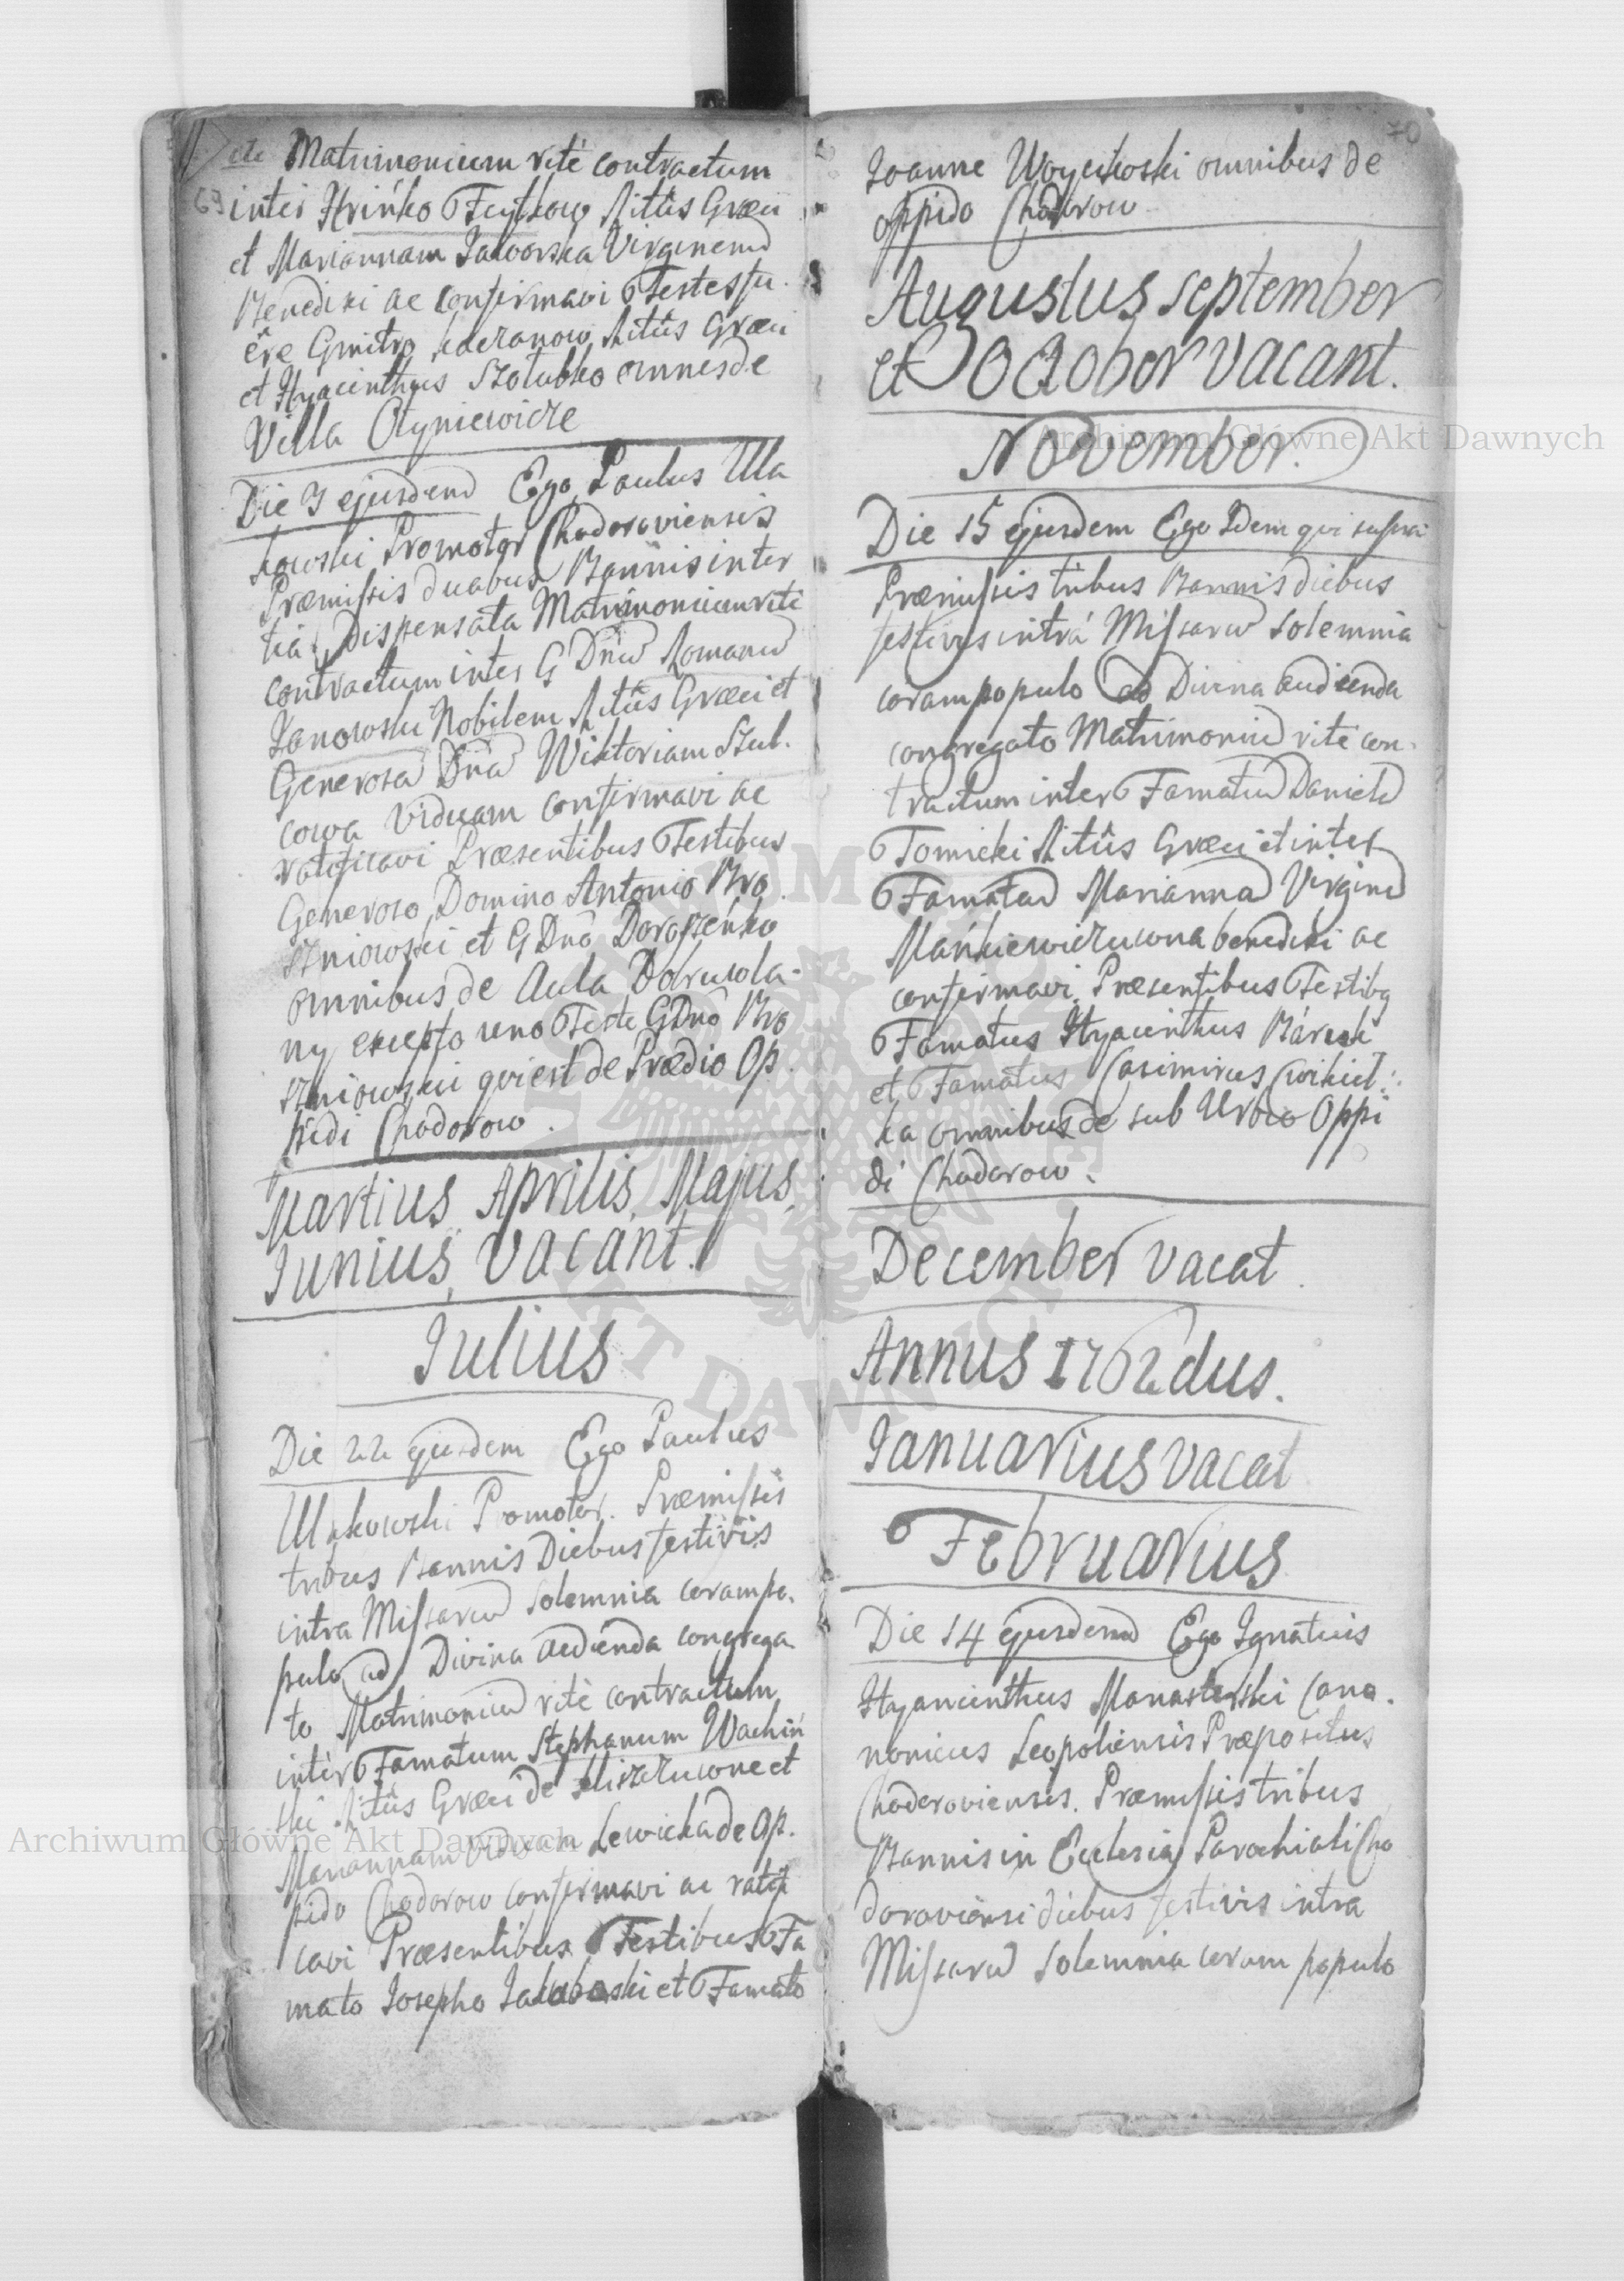 69
Matrimonium ritè contractum
inter Hrińko Feytkow Ritûs Græci
et Mariannam Jaworska Virginem
Benedixi ac confirmavi Testes fu.
êre Gmitro Ritûs Græci
et Hyacinthus Szołubko omnes de
Villa Otyniewicze
Die 3 ejusdem Ego Paulus Ula
kowski Promotor Chodoroviensis
Præmissis duabus Bannis inter
tia Dispensata Matrimonium rite
contractum inter G Dnu Romanu
Janowski Nobilem Ritûs Græci et
Generosa Dna Wiktoriam Szul.
cowa Viduam confirmavi ac
ratificavi Præsentibus Testibus
Generoso Domino Antonio Bro
szniowski et G Dno Doroszeńko
omnibus de Aula
ny excepto uno Teste GDno Bro
szniowski qui est de Prædio Op
pidi Chodorow.
Martius, Aprilis, Majus,
Iunius, vacant.
Iulius
Die 22 ejusdem Ego Paulus
Ulakowski Promotor. Præmissis
tribus Bannis Diebus festivis
intra Missaru Solemnia coram po.
pulo ad Divina audienda congrega
to Matrimoniu ritè contractum
inter Famatum Stephanum Wachiń
ski Ritûs Græci de et
Mariannam Viduam Lewicka de Op.
pido Chodorow confirmavi ac ratifi
cavi Præsentibus Testibus Fa
mato Josepho Jakuboski et Famato
70
Joanne Woycikoski omnibus de
oppido Chodorow
Augustus, September
et October vacant.
November.
Die 15 ejusdem Ego Idem qui supra
Præmissis tribus Bannis diebus
festivis intrá Missaru Solemnia
coram populo ad Divina audienda
congregato Matrimoniu rite con.
tractum inter Famatu Daniele
Tomicki Ritûs Græci et inter
Famata Marianna Virgine
Mańkiewiczuwna benedixi ac
confirmavi. Præsentibus Testibq
Famatus Hyacinthus
et Famatus Casimirus Cwikiel.
ka omnibus de sub Urbio Oppi
di Chodorow.
December vacat.
Annus 1762dus.
Ianuarius vacat
Februarius
Die 14 ejusdem Ego Ignatius
Hyancinthus Manasterski Cano.
nonicus Leopoliensis Præpositus
Chodoroviensis. Præmissis tribus
Bannis in Ecclesia Parochiali Cho
doroviensi diebus festivis intra
Missaru Solemnia coram populo
Archiwum Główne Akt Dawnych
Archiwum Główne Akt Dawnych